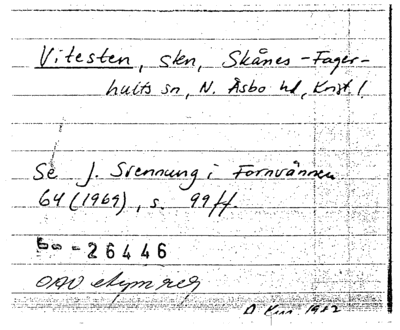 Vitesten, skn, Skånes-Fager-
hults sn, N. Åsbo hd, Krist. l.
Se J. Svennung i Fornvännen
64 (1969), s. 99 ff.
26446
1982